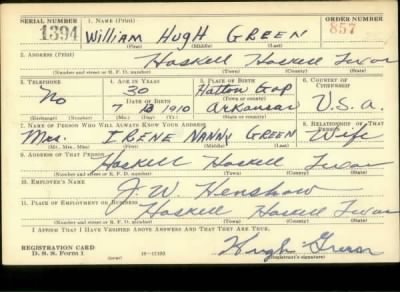 SERIAL NUMBER 1. NAME (Print) ORDER NUMBER
1394 William Hugh Green 857
(First) (Middle) (Last)
2. ADDRESS (Print)
Haskell Haskell Texas
(Number and street or R. F. D. number) (Town) (County) (State)
3. TELEPHONE 4. AGE IN YEARS 5. PLACE OF BIRTH 6. COUNTRY OF CITIZENSHIP
No 30 Hatton Gap U.S.A.
DATE OF BIRTH (Town or county)
7 1910 Arkansas
(Exchange) (Number) (Mo.) (Day) (Yr.) (State or country)
7. NAME OF PERSON WHO WILL ALWAYS KNOW YOUR ADDRESS 8. RELATIONSHIP OF THAT PERSON
Mrs. Irene Nanny Green Wife
(Mr., Mrs., Miss) (First) (Middle) (Last)
9. ADDRESS OF THAT PERSON
Haskell Haskell Texas
(Number and street or R. F. D. number) (Town) (County) (State)
10. EMPLOYER'S NAME
J. W. Henshaw
11. PLACE OF EMPLOYMENT OR BUSINESS
Haskell Haskell Texas
(Number and street or R. F. D. number) (Town) (County) (State)
I AFFIRM THAT I HAVE VERIFIED ABOVE ANSWERS AND THAT THEY ARE TRUE.
REGISTRATION CARD
D. S. S. Form 1 (over) Hugh Green
(Registrant's signature)